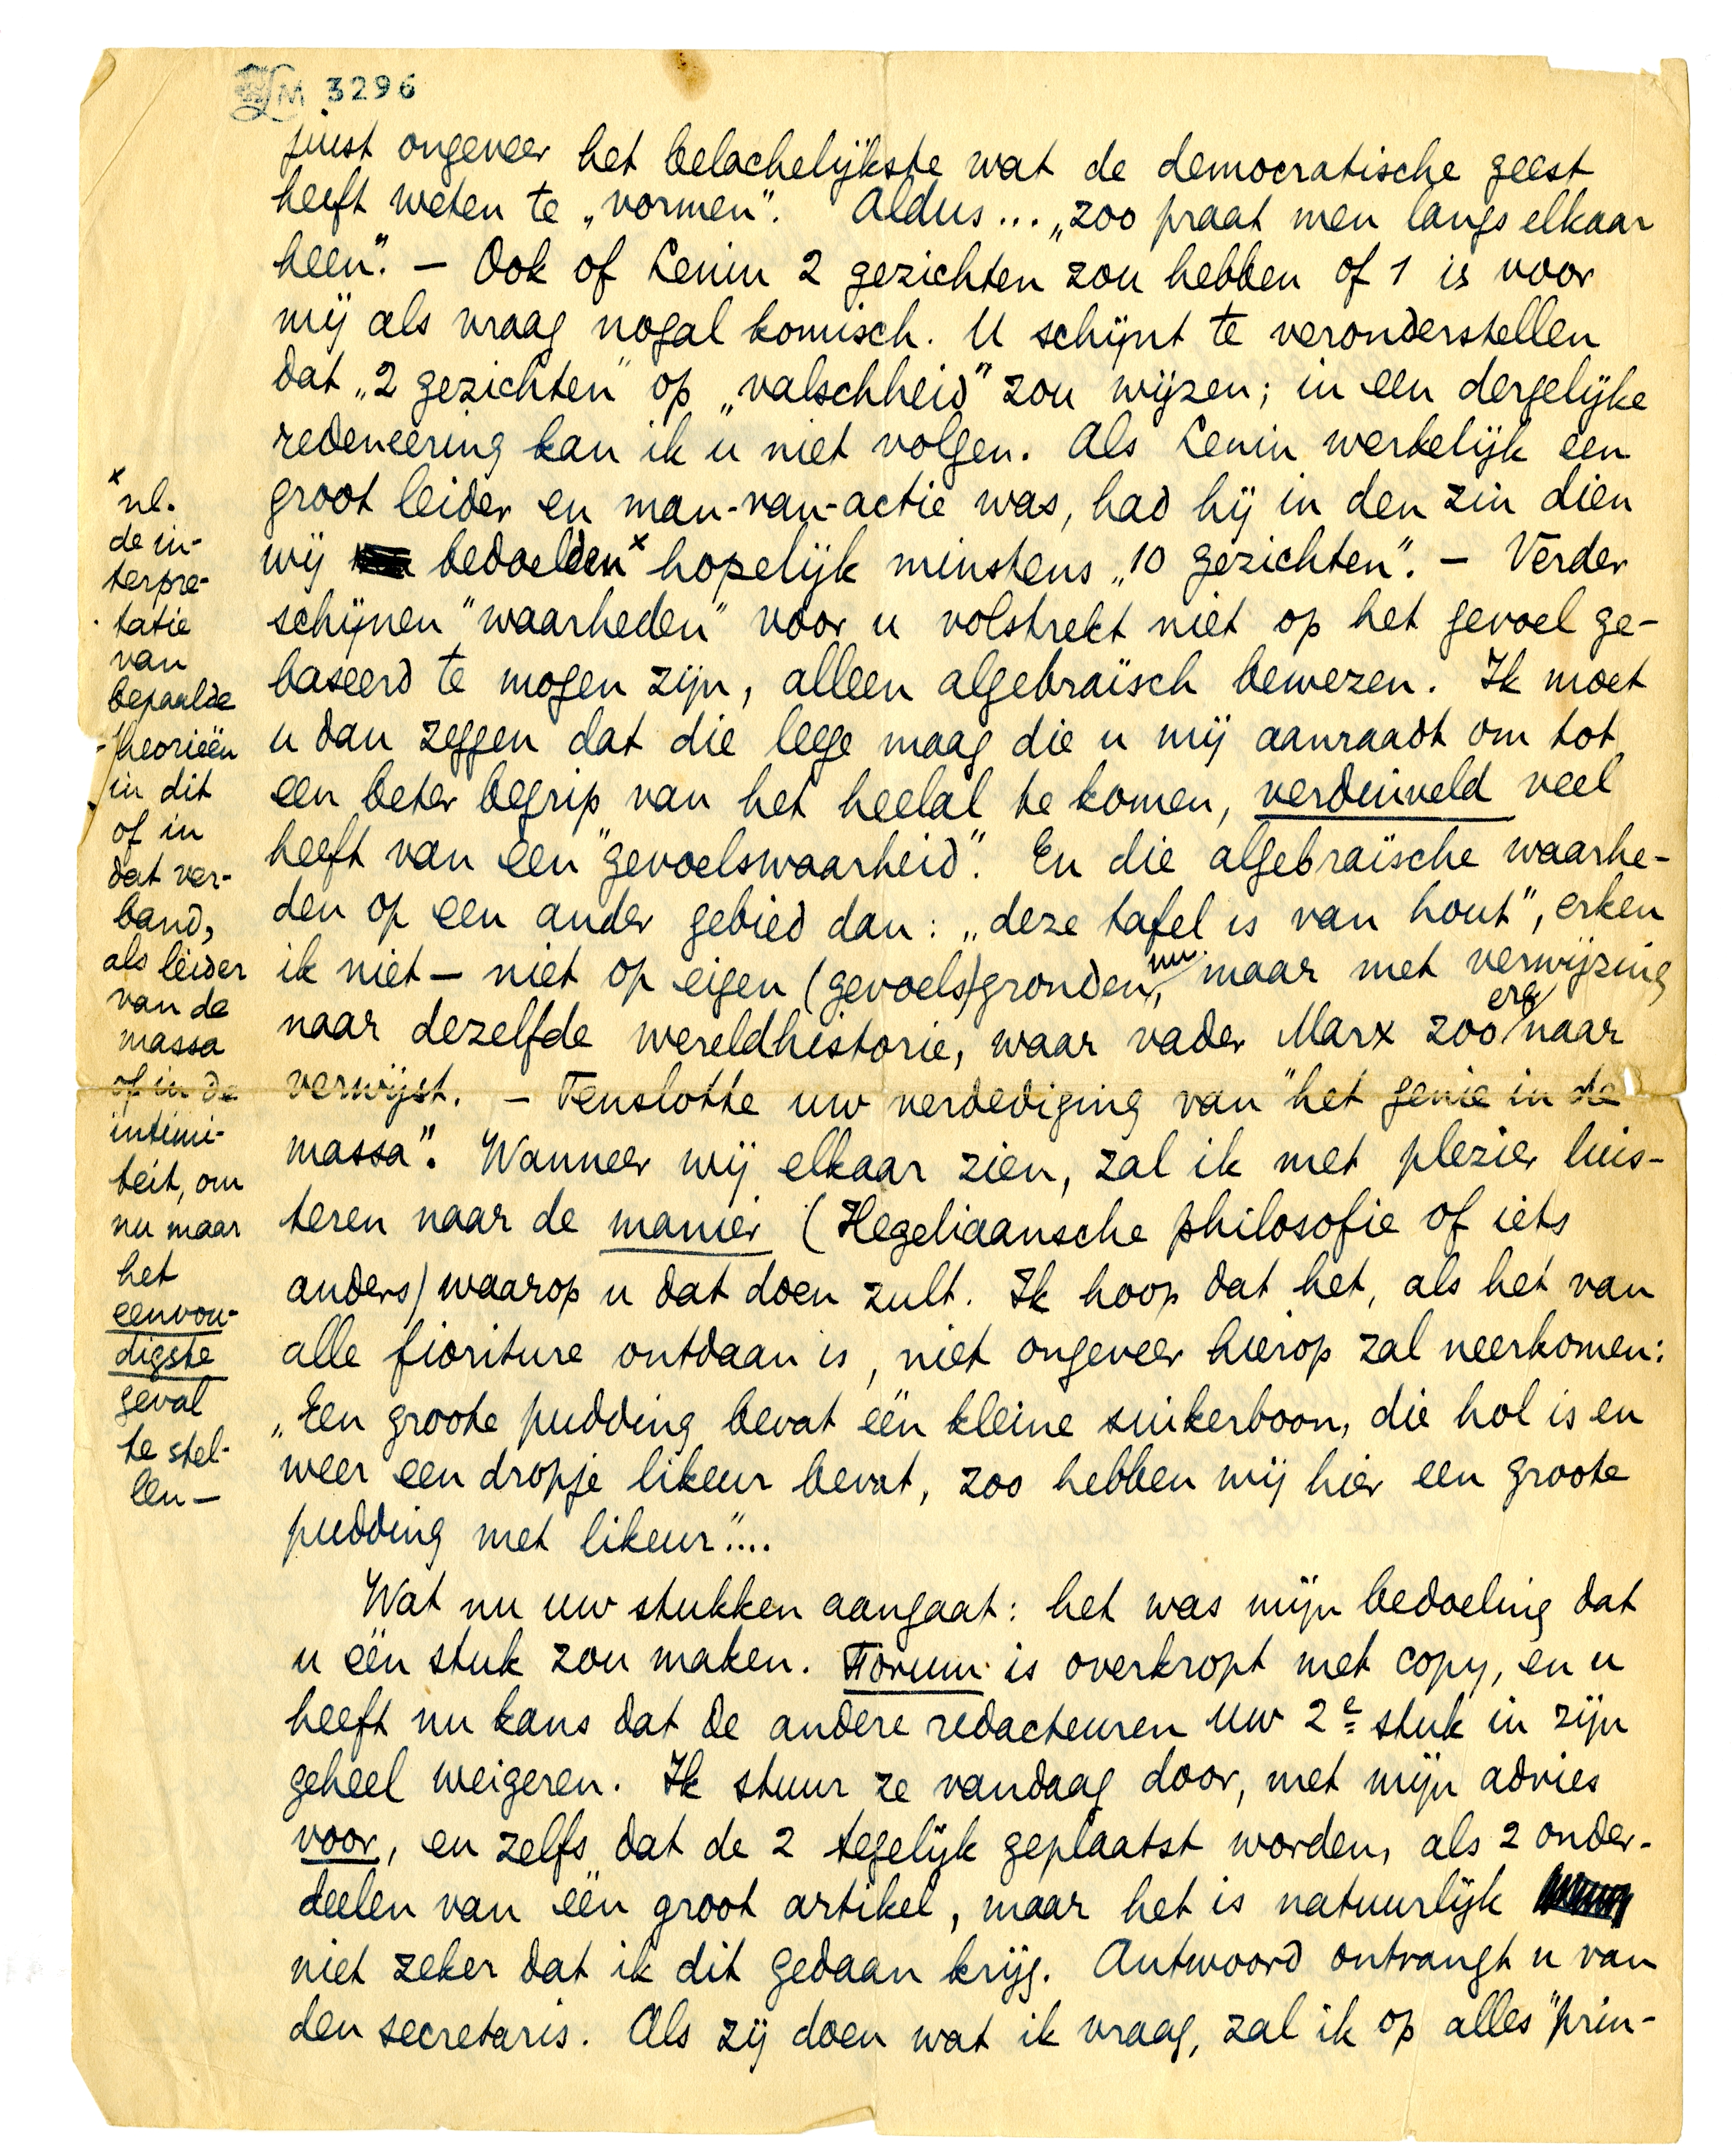 LM 3296
juist ongeveer het belachelijkste wat de democratische geest
heeft weten te „vormen”. Aldus... „zoo praat men langs elkaar
heen”. — Ook of Lenin 2 gezichten zou hebben of 1 is voor
mij als vraag nogal komisch. U schijnt te veronderstellen
dat „2 gezichten” op „valschheid” zou wijzen; in een dergelijke
redeneering kan ik u niet volgen. Als Lenin werkelijk een
groot leider en man-van-actie was, had hij in den zin dien
wij bedoelden× hopelijk minstens „10 gezichten”. — Verder
schijnen "waarheden" voor u volstrekt niet op het gevoel ge-
baseerd te mogen zijn, alleen algebraïsch bewezen. Ik moet
u dan zeggen dat die leege maag die u mij aanraadt om tot
een beter begrip van het heelal te komen, verduiveld veel
heeft van een "gevoelswaarheid". En die algebraïsche waarhe-
den op een ander gebied dan: „deze tafel is van hout”, erken
ik niet — niet op eigen (gevoels)gronden nu, maar met verwijzing
naar dezelfde wereldhistorie, waar vader Marx zoo erg naar
verwijst. — Tenslotte uw verdediging van "het genie in de
massa". Wanneer wij elkaar zien, zal ik met plezier luis-
teren naar de manier (Hegeliaansche philosofie of iets
anders) waarop u dat doen zult. Ik hoop dat het, als het van
alle fioriture ontdaan is, niet ongeveer hierop zal neerkomen:
„Een groote pudding bevat één kleine suikerboon, die hol is en
weer een dropje likeur bevat, zoo hebben wij hier een groote
pudding met likeur”....
Wat nu uw stukken aangaat: het was mijn bedoeling dat
u één stuk zou maken. Forum is overkropt met copy, en u
heeft nu kans dat de andere redacteuren uw 2e stuk in zijn
geheel weigeren. Ik stuur ze vandaag door, met mijn advies
voor, en zelfs dat de 2 tegelijk geplaatst worden, als 2 onder-
deelen van één groot artikel, maar het is natuurlijk
niet zeker dat ik dit gedaan krijg. Antwoord ontvangt u van
den secretaris. Als zij doen wat ik vraag, zal ik op alles "prin-
× nl.
de in-
terpre-
tatie
van
bepaalde
theorieën
in dit
of in
dat ver-
band,
als leider
van de
massa
of in de
intimi-
teit, om
nu maar
het
eenvou-
digste
geval
te stel-
len —